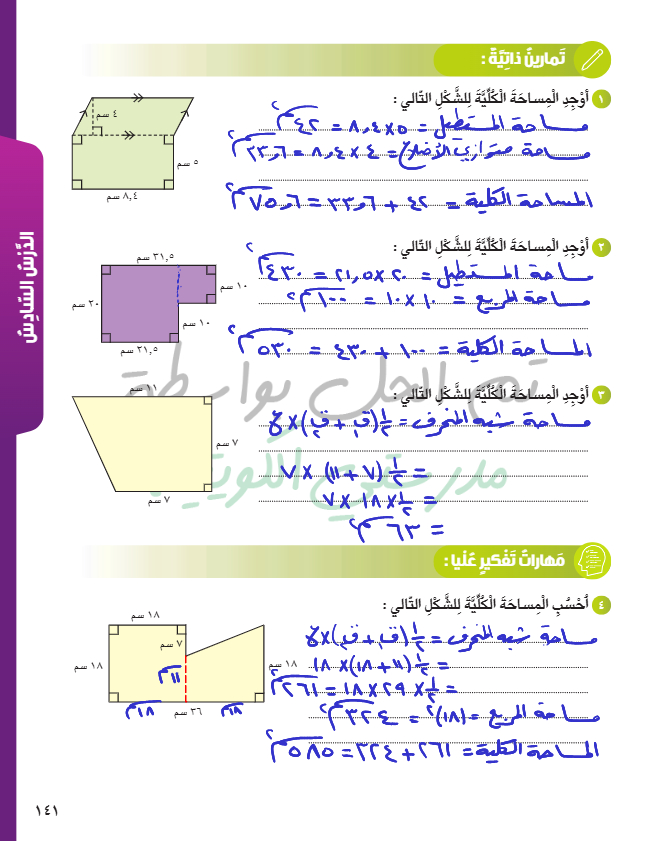 تَمارينُ ذاتِيَّةٌ :
١ أَوْجِدِ الْمِساحَةَ الْكُلِّيَّةَ لِلشَّكْلِ التّالي :
٤ سم
٥ سم
٨,٤ سم
مساحة المستطيل = ٥ × ٨,٤ = ٤٢ سم٢
مساحة متوازي الأضلاع = ٤ × ٨,٤ = ٣٣,٦ سم٢
المساحة الكلية = ٤٢ + ٣٣,٦ = ٧٥,٦ سم٢
٢ أَوْجِدِ الْمِساحَةَ الْكُلِّيَّةَ لِلشَّكْلِ التّالي :
٣١,٥ سم
١٠ سم
٢٠ سم
١٠ سم
٢١,٥ سم
مساحة المستطيل = ٢٠ × ٢١,٥ = ٤٣٠ سم٢
مساحة المربع = ١٠ × ١٠ = ١٠٠ سم٢
المساحة الكلية = ١٠٠ + ٤٣٠ = ٥٣٠ سم٢
تم الحل بواسطة
مدرستي الكويتية
٣ أَوْجِدِ الْمِساحَةَ الْكُلِّيَّةَ لِلشَّكْلِ التّالي :
١١ سم
٧ سم
٧ سم
مساحة شبه المنحرف = ١/٢ (ق١ + ق٢) × ع
= ١/٢ (٧ + ١١) × ٧
= ١/٢ × ١٨ × ٧
= ٦٣ سم٢
مَهاراتُ تَفْكيرٍ عُلْيا :
٤ اُحْسُبِ الْمِساحَةَ الْكُلِّيَّةَ لِلشَّكْلِ التّالي :
١٨ سم
٧ سم
١٨ سم
١٨ سم
١١ سم
١٨ سم
٣٦ سم
١٨ سم
مساحة شبه المنحرف = ١/٢ (ق١ + ق٢) × ع
= ١/٢ (١١ + ١٨) × ١٨
= ١/٢ × ٢٩ × ١٨ = ٢٦١ سم٢
مساحة المربع = (١٨)٢ = ٣٢٤ سم٢
المساحة الكلية = ٢٦١ + ٣٢٤ = ٥٨٥ سم٢
الدَّرْسُ السّادِسُ
١٤١